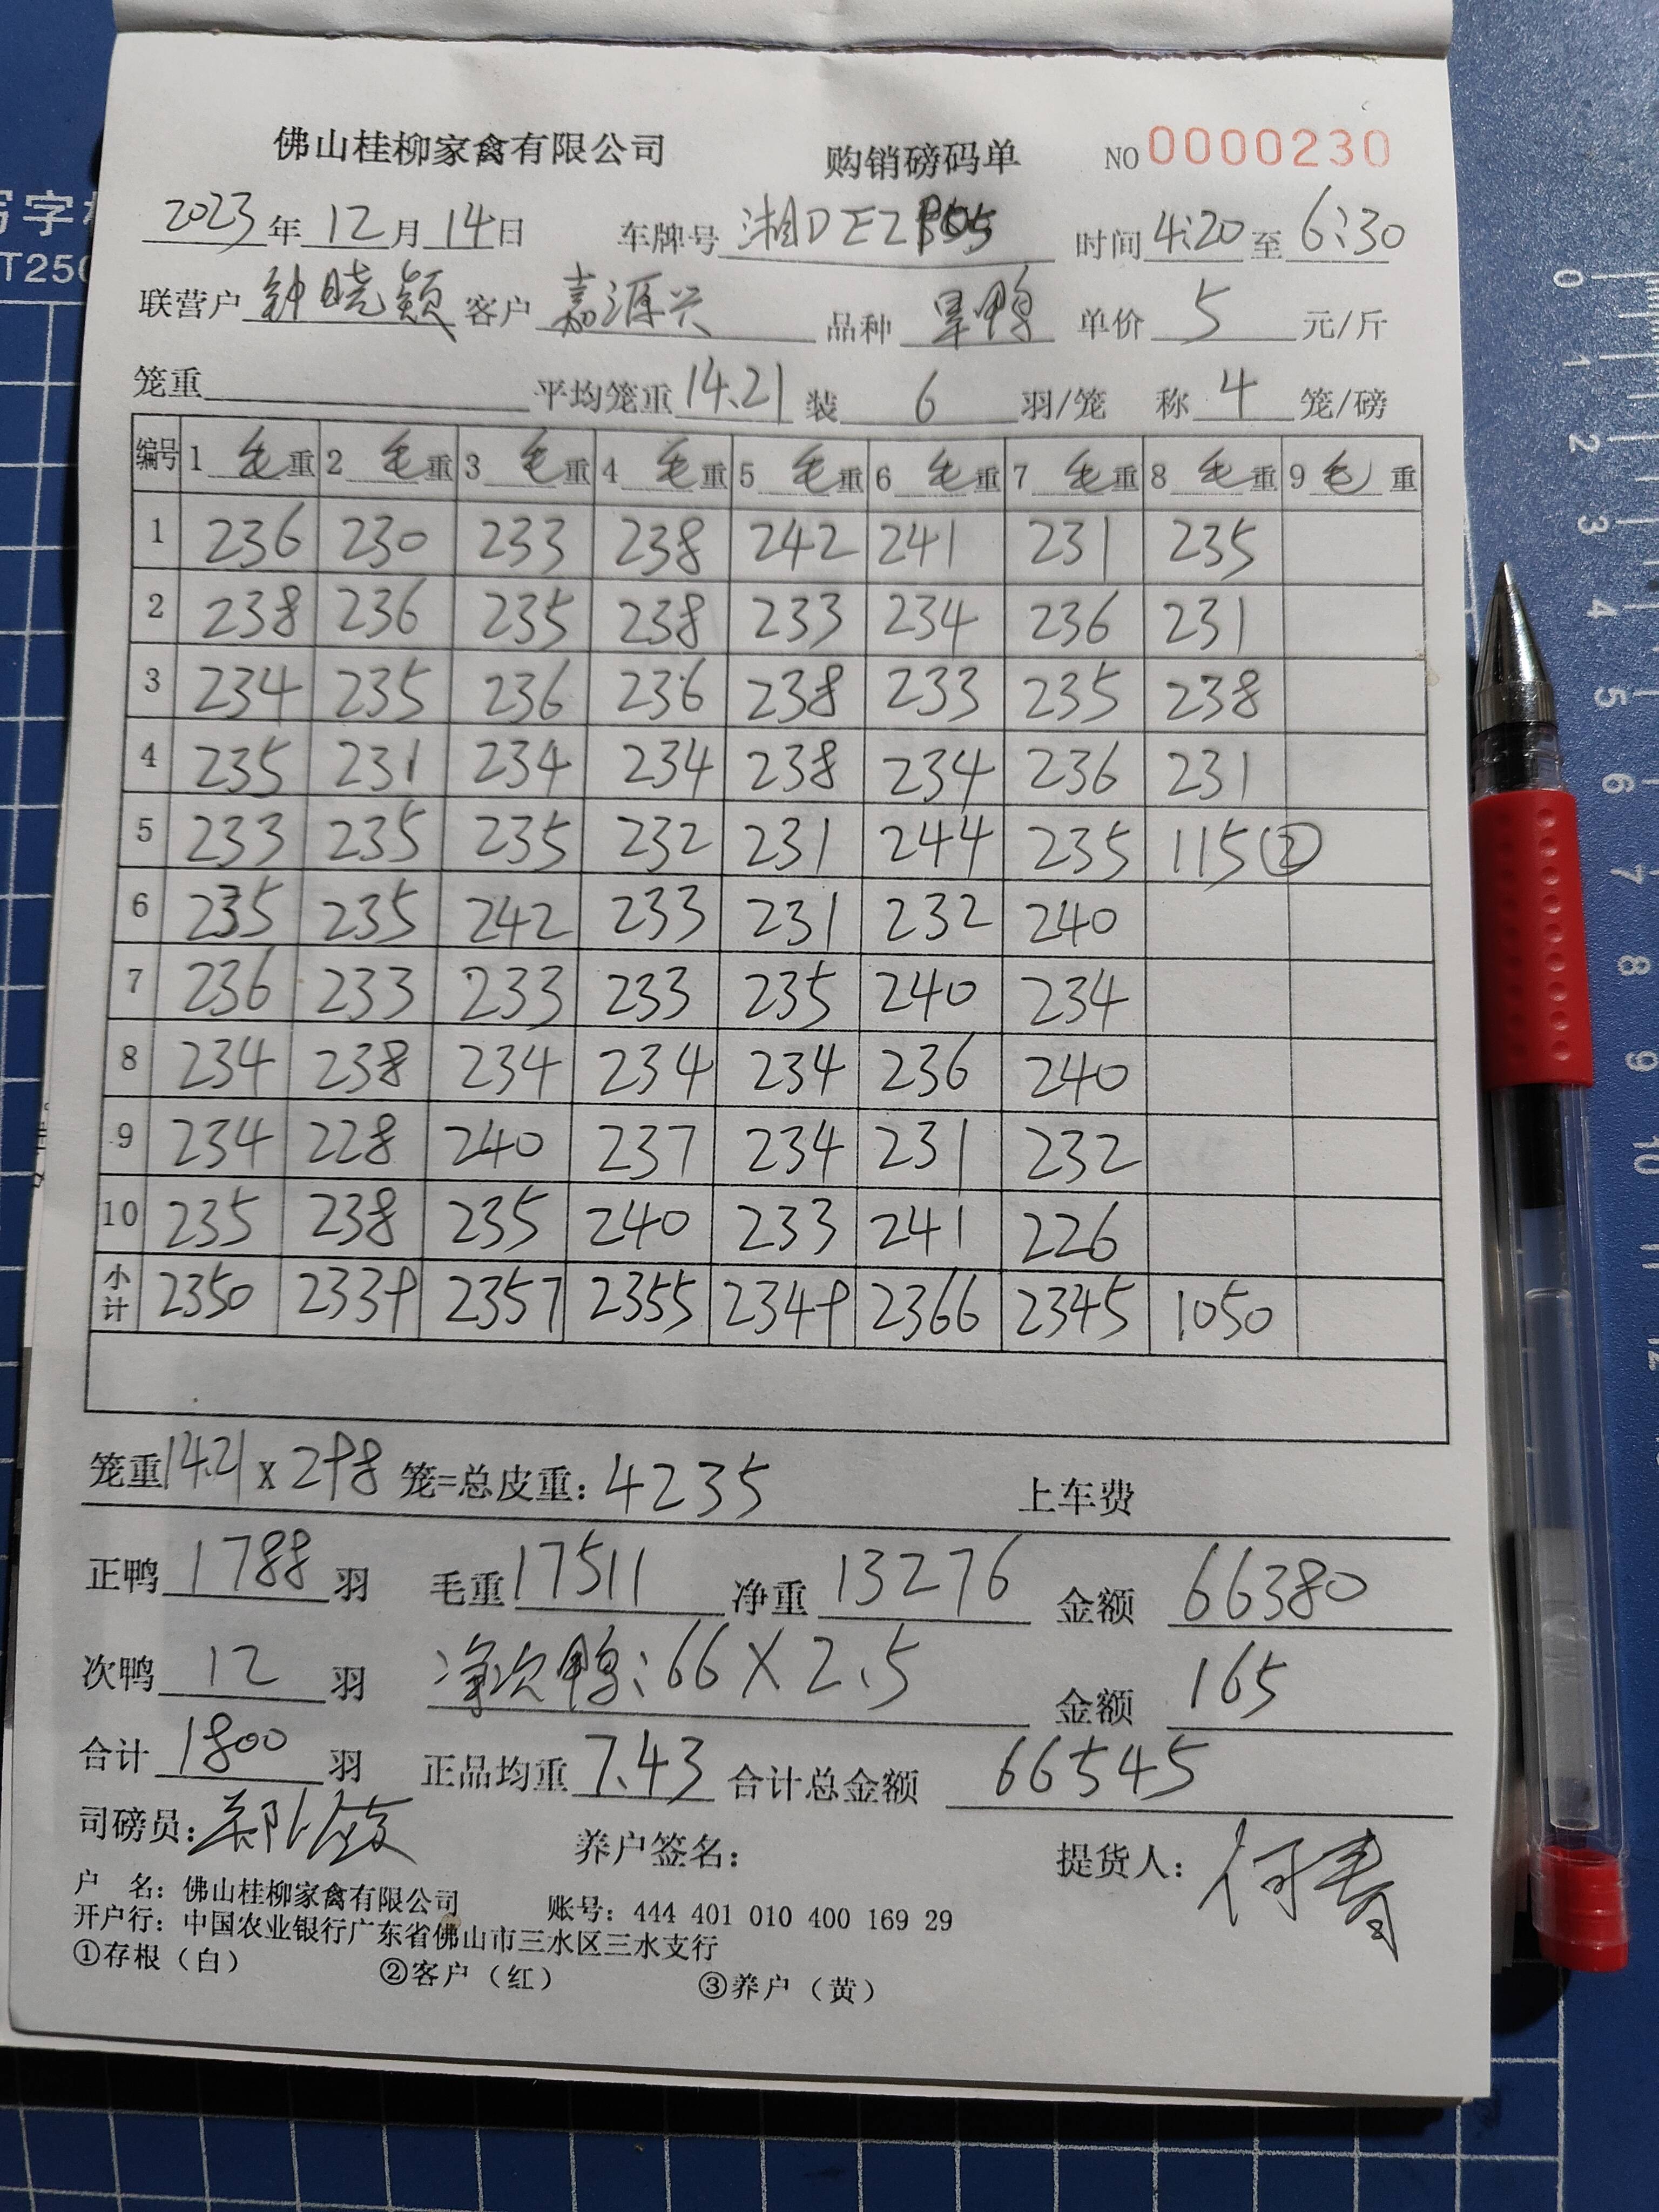 佛山桂柳家禽有限公司 购销磅码单 NO 0000230
2023年12月14日 车牌号 湘DEZ 时间 4:20 至 6:30
联营户 钟晓颖 客户 嘉源兴 品种 旱鸭 单价 5 元/斤
笼重 平均笼重 14.21 装 6 羽/笼 称 4 笼/磅
编号 1 毛重 2 毛重 3 毛重 4 毛重 5 毛重 6 毛重 7 毛重 8 毛重 9 毛重
1 236 230 233 238 242 241 231 235
2 238 236 235 238 233 234 236 231
3 234 235 236 236 238 233 235 238
4 235 231 234 234 238 234 236 231
5 233 235 235 232 231 244 235 115②
6 235 235 242 233 231 232 240
7 236 233 233 233 235 240 234
8 234 238 234 234 234 236 240
9 234 228 240 237 234 231 232
10 235 238 235 240 233 241 226
小计 2350 2339 2357 2355 2349 2366 2345 1050
笼重 14.21 x 298 笼=总皮重: 4235 上车费
正鸭 1788 羽 毛重 17511 净重 13276 金额 66380
次鸭 12 羽 净次鸭:66 X 2.5 金额 165
合计 1800 羽 正品均重 7.43 合计总金额 66545
司磅员: 养户签名: 提货人: 何春
户 名: 佛山桂柳家禽有限公司 账号: 444 401 010 400 169 29
开户行: 中国农业银行广东省佛山市三水区三水支行
①存根（白） ②客户（红） ③养户（黄）
0
1
2
3
4
5
6
7
8
9
10
11
12